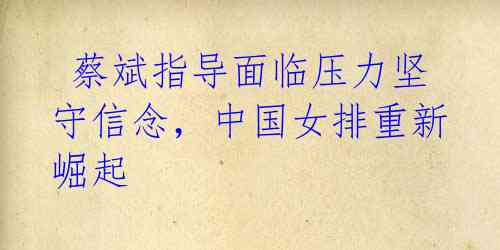 蔡斌指导面临压力坚
守信念，中国女排重新
崛起